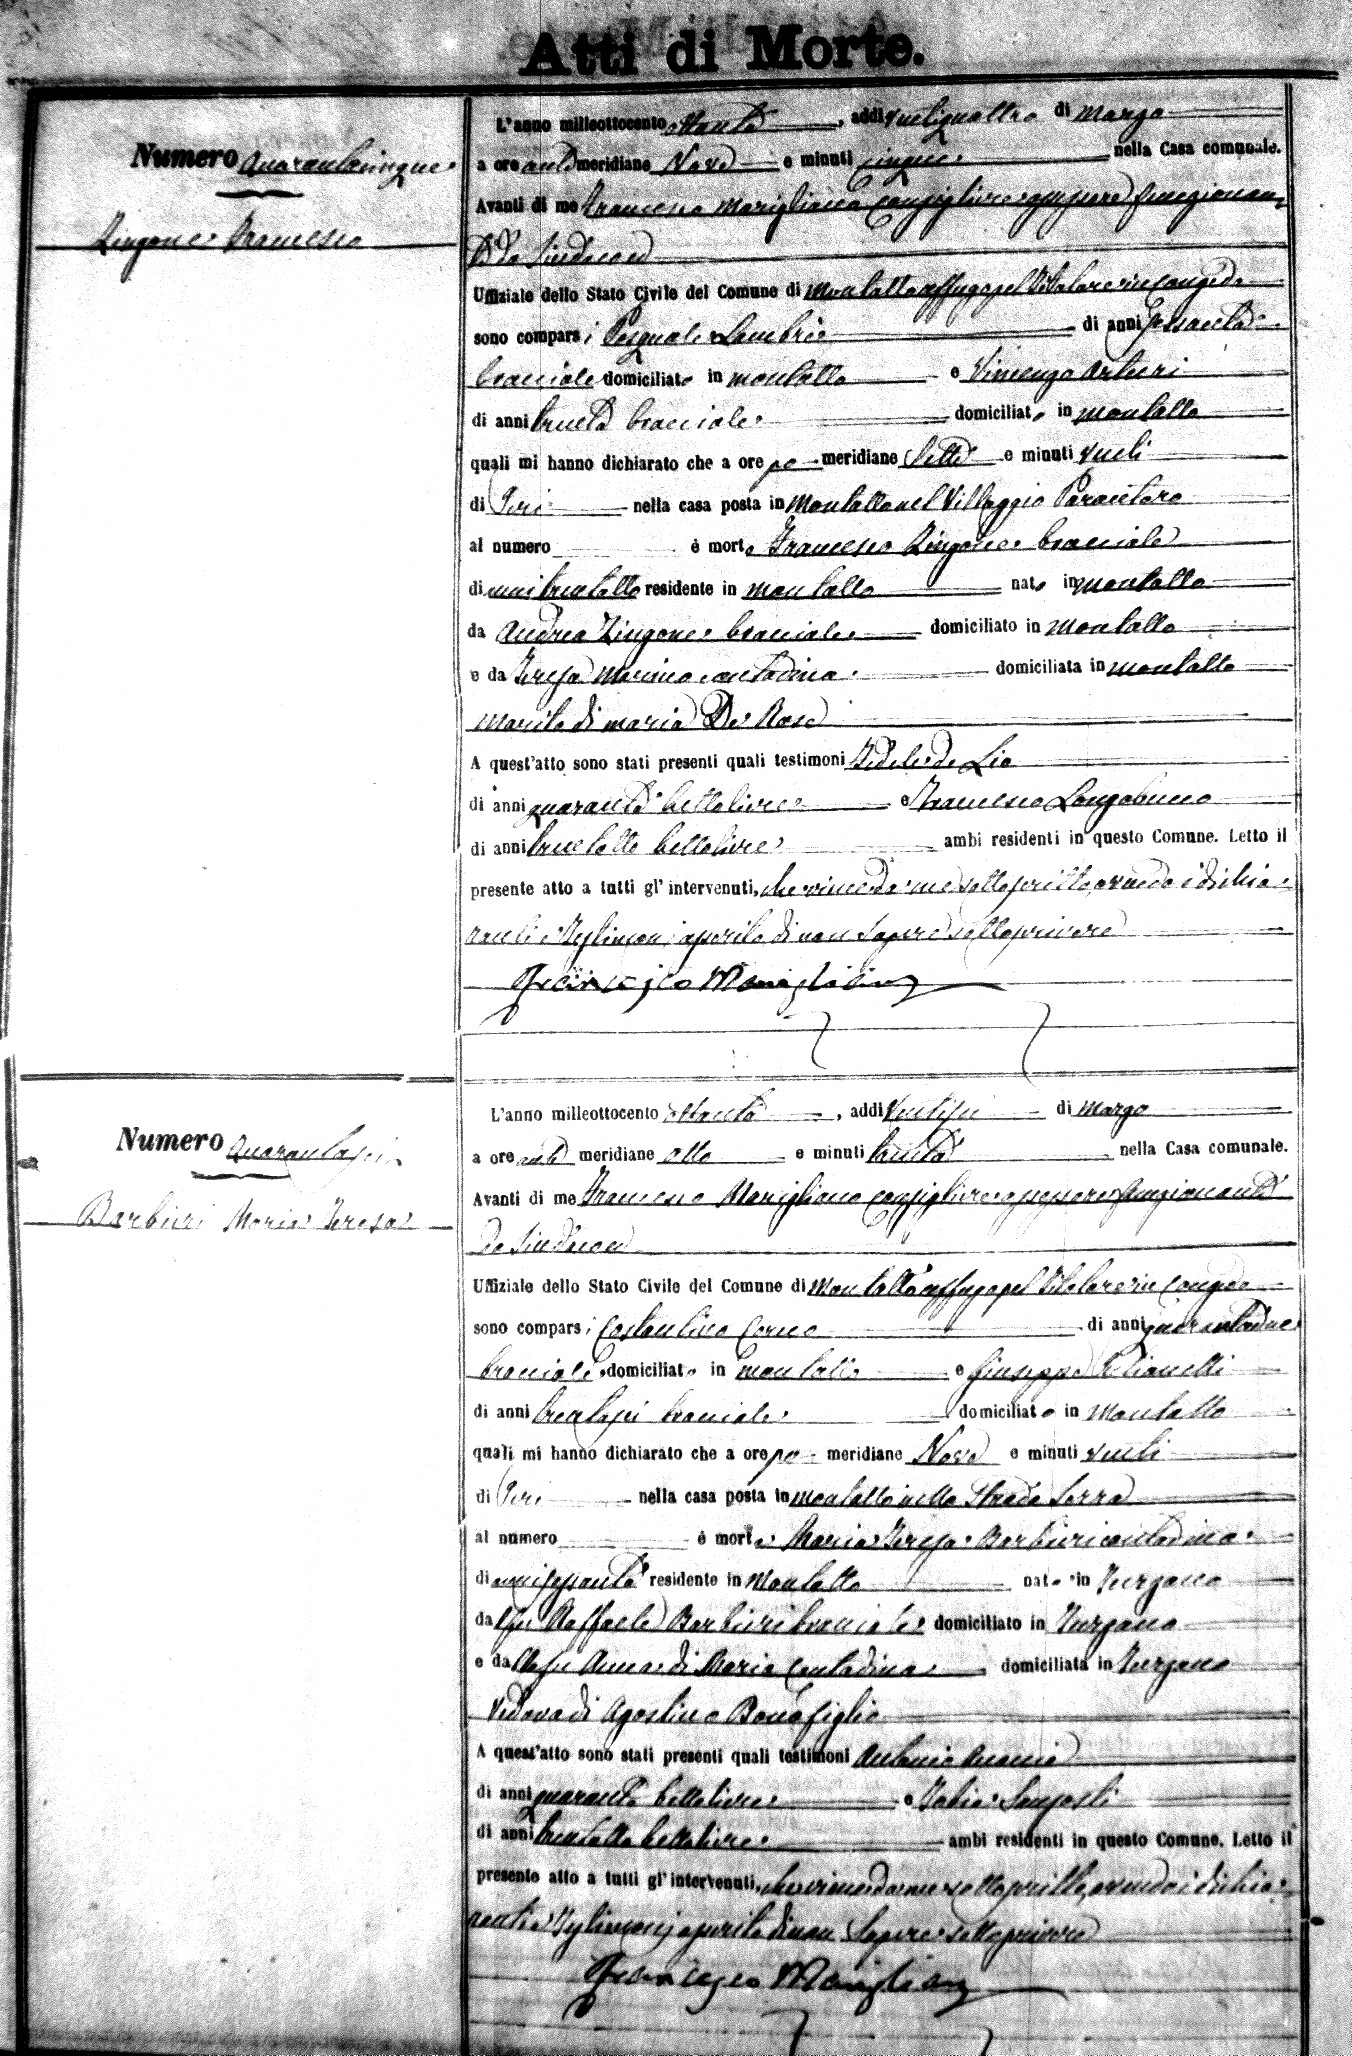 Atti di Morte.
Numero Quarantacinque
Zingone Francesco
L'anno milleottocento ottanta, addi ventiquattro di marzo
a ore anti meridiane Nove e minuti cinque nella Casa comunale.
Avanti di me Francesco Marigliano Consigliere funzionan
te da Sindaco
Uffiziale dello Stato Civile del Comune di Montalto Uffugo pel titolare in congedo
sono comparsi Pasquale Lambrie di anni sessanta
bracciale domiciliato in Montalto e Vincenzo Arturi
di anni trenta bracciale domiciliato in Montalto
quali mi hanno dichiarato che a ore po meridiane Sette e minuti venti
di Jeri nella casa posta in Montalto nel Villaggio Parantoro
al numero è morto Francesco Zingone bracciale
di anni trentotto residente in Montalto nato in Montalto
da Andrea Zingone bracciale domiciliato in Montalto
e da Teresa Marino contadina domiciliata in Montalto
marito di Maria De Rose
A quest'atto sono stati presenti quali testimoni Fedele de Lio
di anni quaranta bettoliere e Francesco Longobucco
di anni trentotto bettoliere ambi residenti in questo Comune. Letto il
presente atto a tutti gl' intervenuti, che viene da me sottoscritto, avendo i dichia
ranti e testimoni asserito di non sapere sottoscrivere
Francesco Marigliano
Numero Quarantasei
Barbieri Maria Teresa
L'anno milleottocento ottanta, addi ventisei di marzo
a ore anti meridiane otto e minuti trenta nella Casa comunale.
Avanti di me Francesco Marigliano Consigliere funzionante
da Sindaco
Uffiziale dello Stato Civile del Comune di Montalto Uffugo pel titolare in congedo
sono comparsi Costantino Corno di anni quarantadue
bracciale domiciliato in Montalto e Giuseppe
di anni trentasei bracciale domiciliato in Montalto
quali mi hanno dichiarato che a ore po meridiane Nove e minuti venti
di Jeri nella casa posta in Montalto nella Strada Serra
al numero è morta Maria Teresa Barbieri contadina
di anni sessanta residente in Montalto nata in Turzano
da fu Raffaele Barbieri bracciale domiciliato in Turzano
e da fu Anna di Maria Contadina domiciliata in Turzano
Vedova di Agostino Bonofiglio
A quest'atto sono stati presenti quali testimoni Antonio Anania
di anni quaranta bettoliere e
di anni trentotto bettoliere ambi residenti in questo Comune. Letto il
presente atto a tutti gl' intervenuti, che viene da me sottoscritto, avendo i dichia
ranti e testimoni asserito di non sapere sottoscrivere
Francesco Marigliano